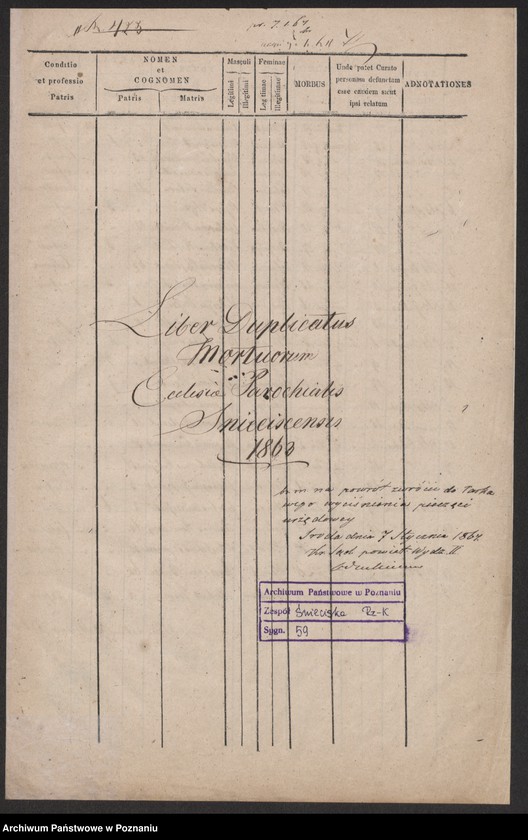 pr. 7.1.64
Conditio
et professio
Patris
NOMEN
et
COGNOMEN
Patris
Matris
Masculi
Legitimi
illegitimi
Feminae
Legitimae
illegitimae
MORBUS
Unde patet Curato
personam defunctam
esse eandem sicut
ipsi relatum
ADNOTATIONES
Liber Duplicatus
Mortuorum
Ecclesiæ Parochialis
Snieciscensis
1863
na powrót zwrócić do
wego wyciśnienia pieczęci
urzędowey
Środa dnia 7 Stycznia 1864.
Sąd powiat Wydz. II
Archiwum Państwowe w Poznaniu
Zespół Śnieciska Rz-K
Sygn. 59
Archiwum Państwowe w Poznaniu